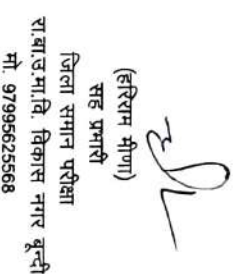 (हरिराम मीणा)
सह प्रभारी
जिला समान परीक्षा
रा.बा.उ.मा.वि. विकास नगर बून्दी
मो. 97995625568